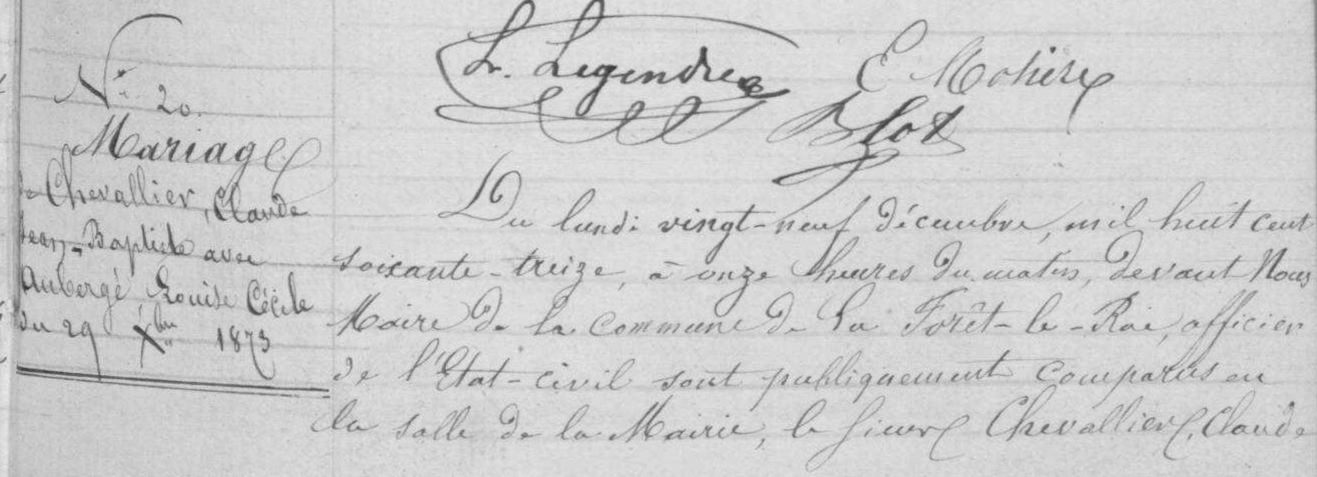 Lr. Legendre E Mohier
Blot
N° 20.
Mariage
de Chevallier, Claude
Jean-Baptiste avec
Aubergé, Louise Cécile
du 29 Xbre 1873
Du lundi vingt-neuf décembre, mil huit cent
soixante-treize, à onze heures du matin, devant Nous
Maire de la commune de La Forêt-le-Roi, officier
de l'Etat-civil sont publiquement comparus en
la salle de la Mairie, le sieur Chevallier, Claude